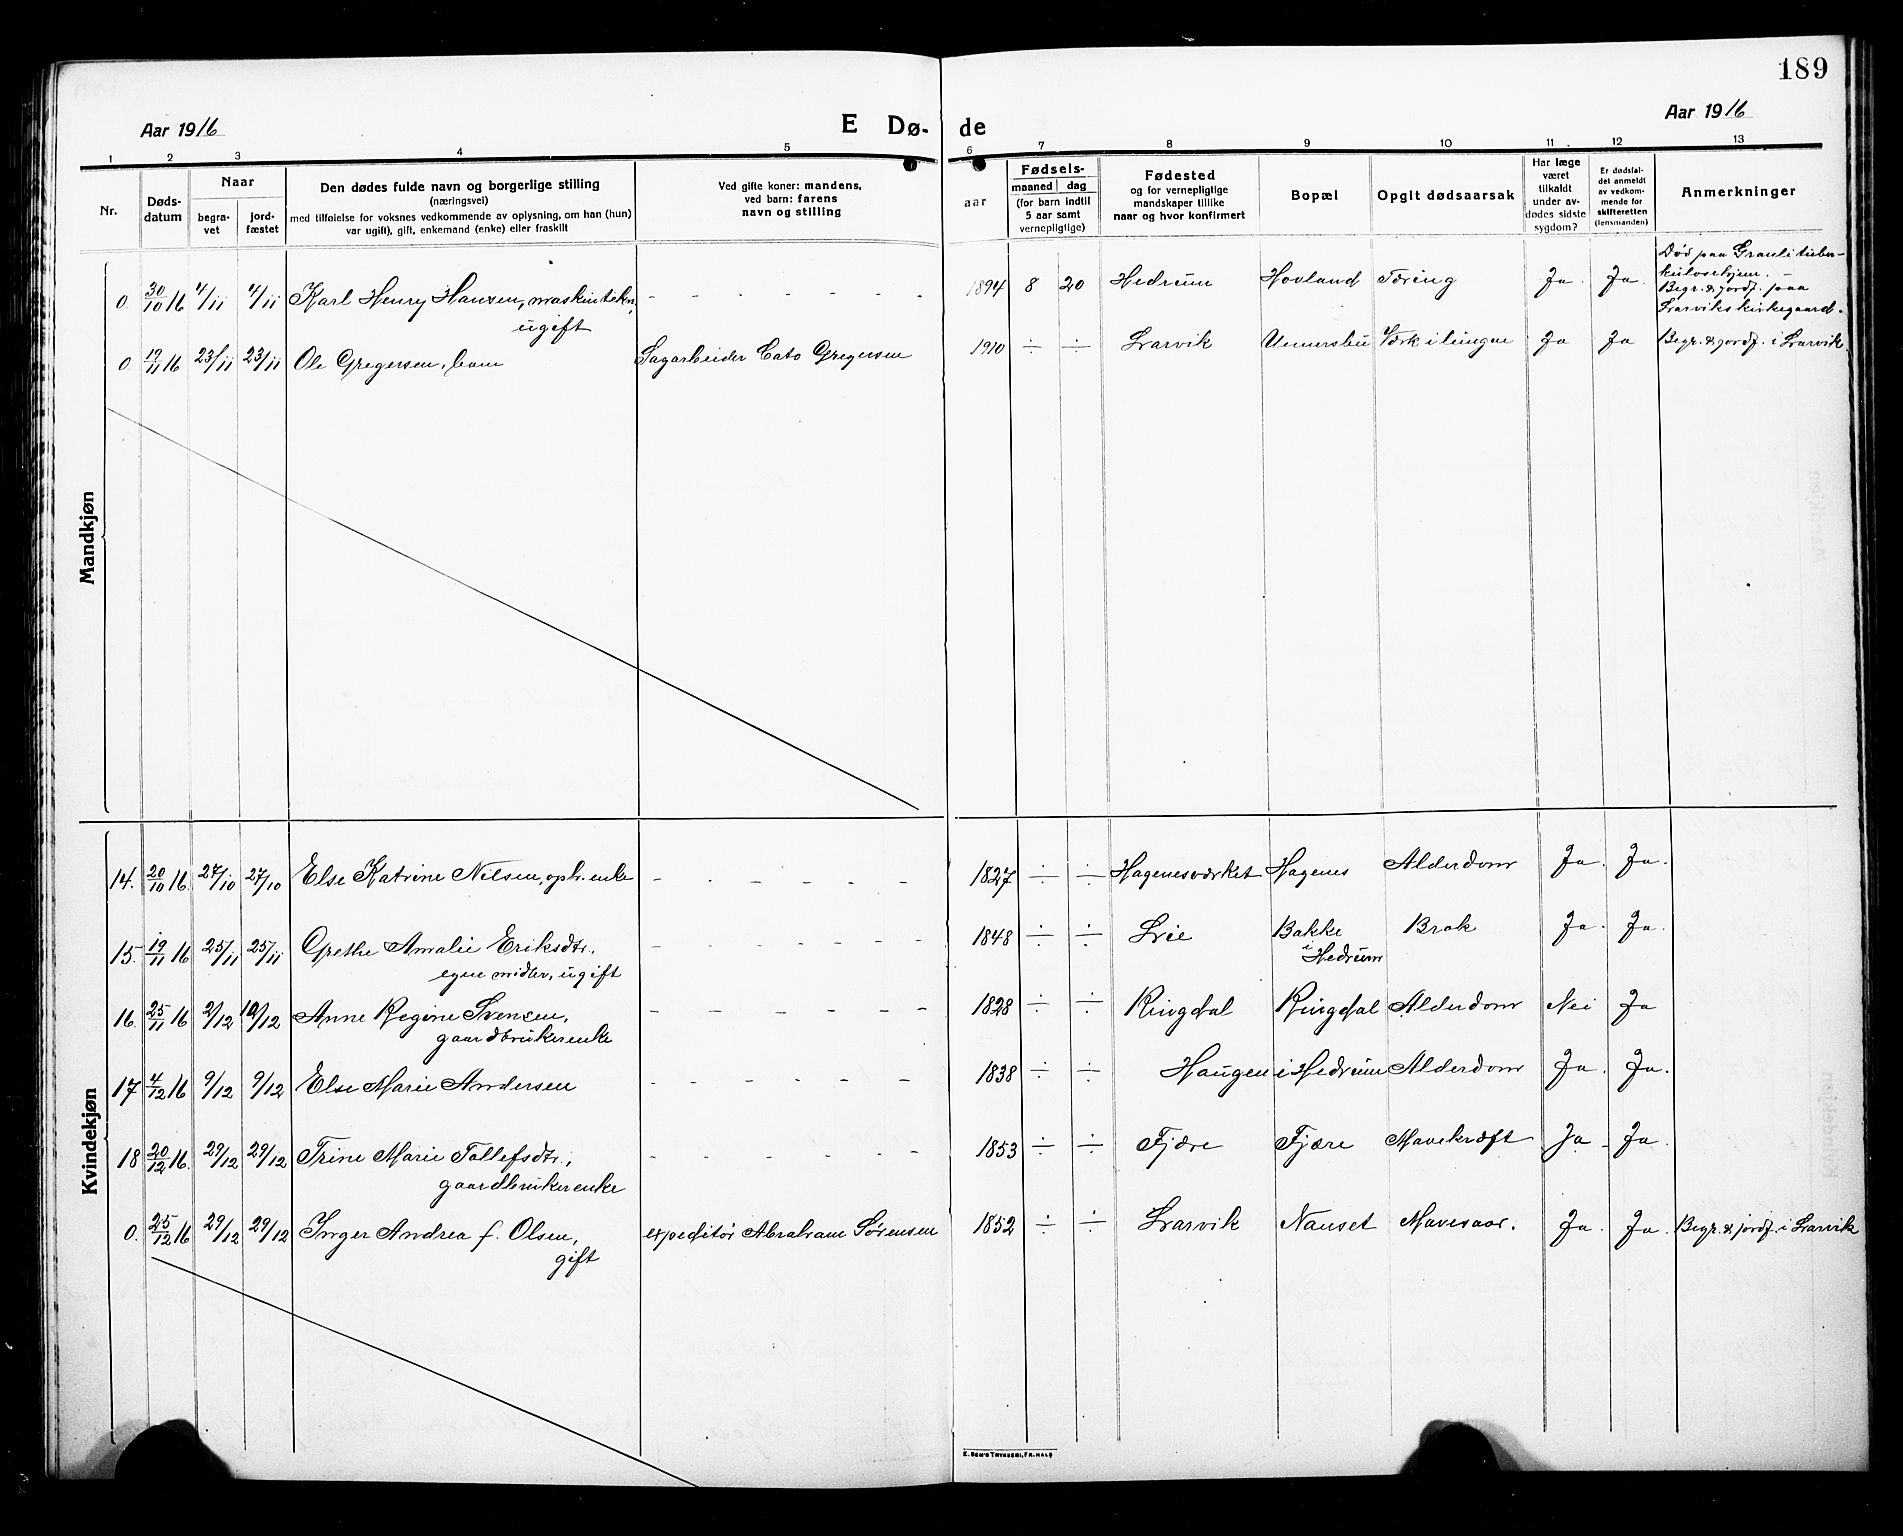 189
Aar 1916
E Dø-
de
Aar 1916
1 2 3 4 5 6 7 8 9 10 11 12 13
Nr.
Døds-
datum
Naar
begra-
vet
jord-
fæstet
Den dødes fulde navn og borgerlige stilling
(næringsvei)
med tilføielse for voksnes vedkommende av oplysning, om han (hun)
var ugift), gift, enkemand (enke) eller fraskilt
Ved gifte koner: mandens,
ved barn: farens
navn og stilling
aar
Fødsels-
maaned dag
(for barn indtil
5 aar samt
vernepligtige)
Fødested
og for vernepligtige
mandskaper tillike
naar og hvor konfirmert
Bopæl
Opgit dødsaarsak
Har læge
været
tilkaldt
under av-
dødes sidste
sygdom?
Er dødsfal-
det anmeldt
av vedkom-
mende for
skifteretten
(lensmanden)
Anmerkninger
Mandkjøn
0. 30/10 16 4/11 4/11 Karl Henry Hansen, maskintekn., - - - - - - 1894 8 20 Hedrum Hovland Tæring Ja. Ja.
ugift
Død paa Granli tuber-
kulosehjem. -
Begr. & jordf. paa
Larviks kirkegaard.
0. 19/11 16 23/11 23/11 Ole Gregersen, barn Sagarbeider Cato Gregersen 1910 ÷ ÷ Larvik Unnersbu Værk i lungen Ja Ja Begr. & jordf. i Larvik.
Kvindekjøn
14. 20/10 16 27/10 27/10 Else Katrine Nilsen, oph. enke - - - - - - 1827 ÷ ÷ Hagenesværket Hagenes Alderdom Ja. Ja.
15. 19/11 16 25/11 25/11 Grethe Amalie Eriksdtr., - - - - - - 1848 ÷ ÷ Lie Bakke Brok Ja. Ja.
egne midler, ugift
i Hedrum
16. 25/11 16 2/12 10/12 Anne Regine Svensen, - - - - - - 1828 ÷ ÷ Ringdal Ringdal Alderdom Nei Ja
gaardbrukerenke
17 4/12 16 9/12 9/12 Else Marie Andersen - - - - - - 1838 ÷ ÷ Haugen i Hedrum Alderdom Ja. Ja.
18 20/12 16. 29/12 29/12 Trine Marie Tollefsdtr., - - - - - - 1853 ÷ ÷ Fjære Fjære Mavekræft Ja - Ja.
gaardbrukerenke
0. 25/12 16 29/12 29/12 Inger Andrea f. Olsen, expeditør Abraham Sørensen 1852 ÷ ÷ Larvik Nanset Mavesaar. Ja. Ja. Begr. & jordf. i Larvik
gift